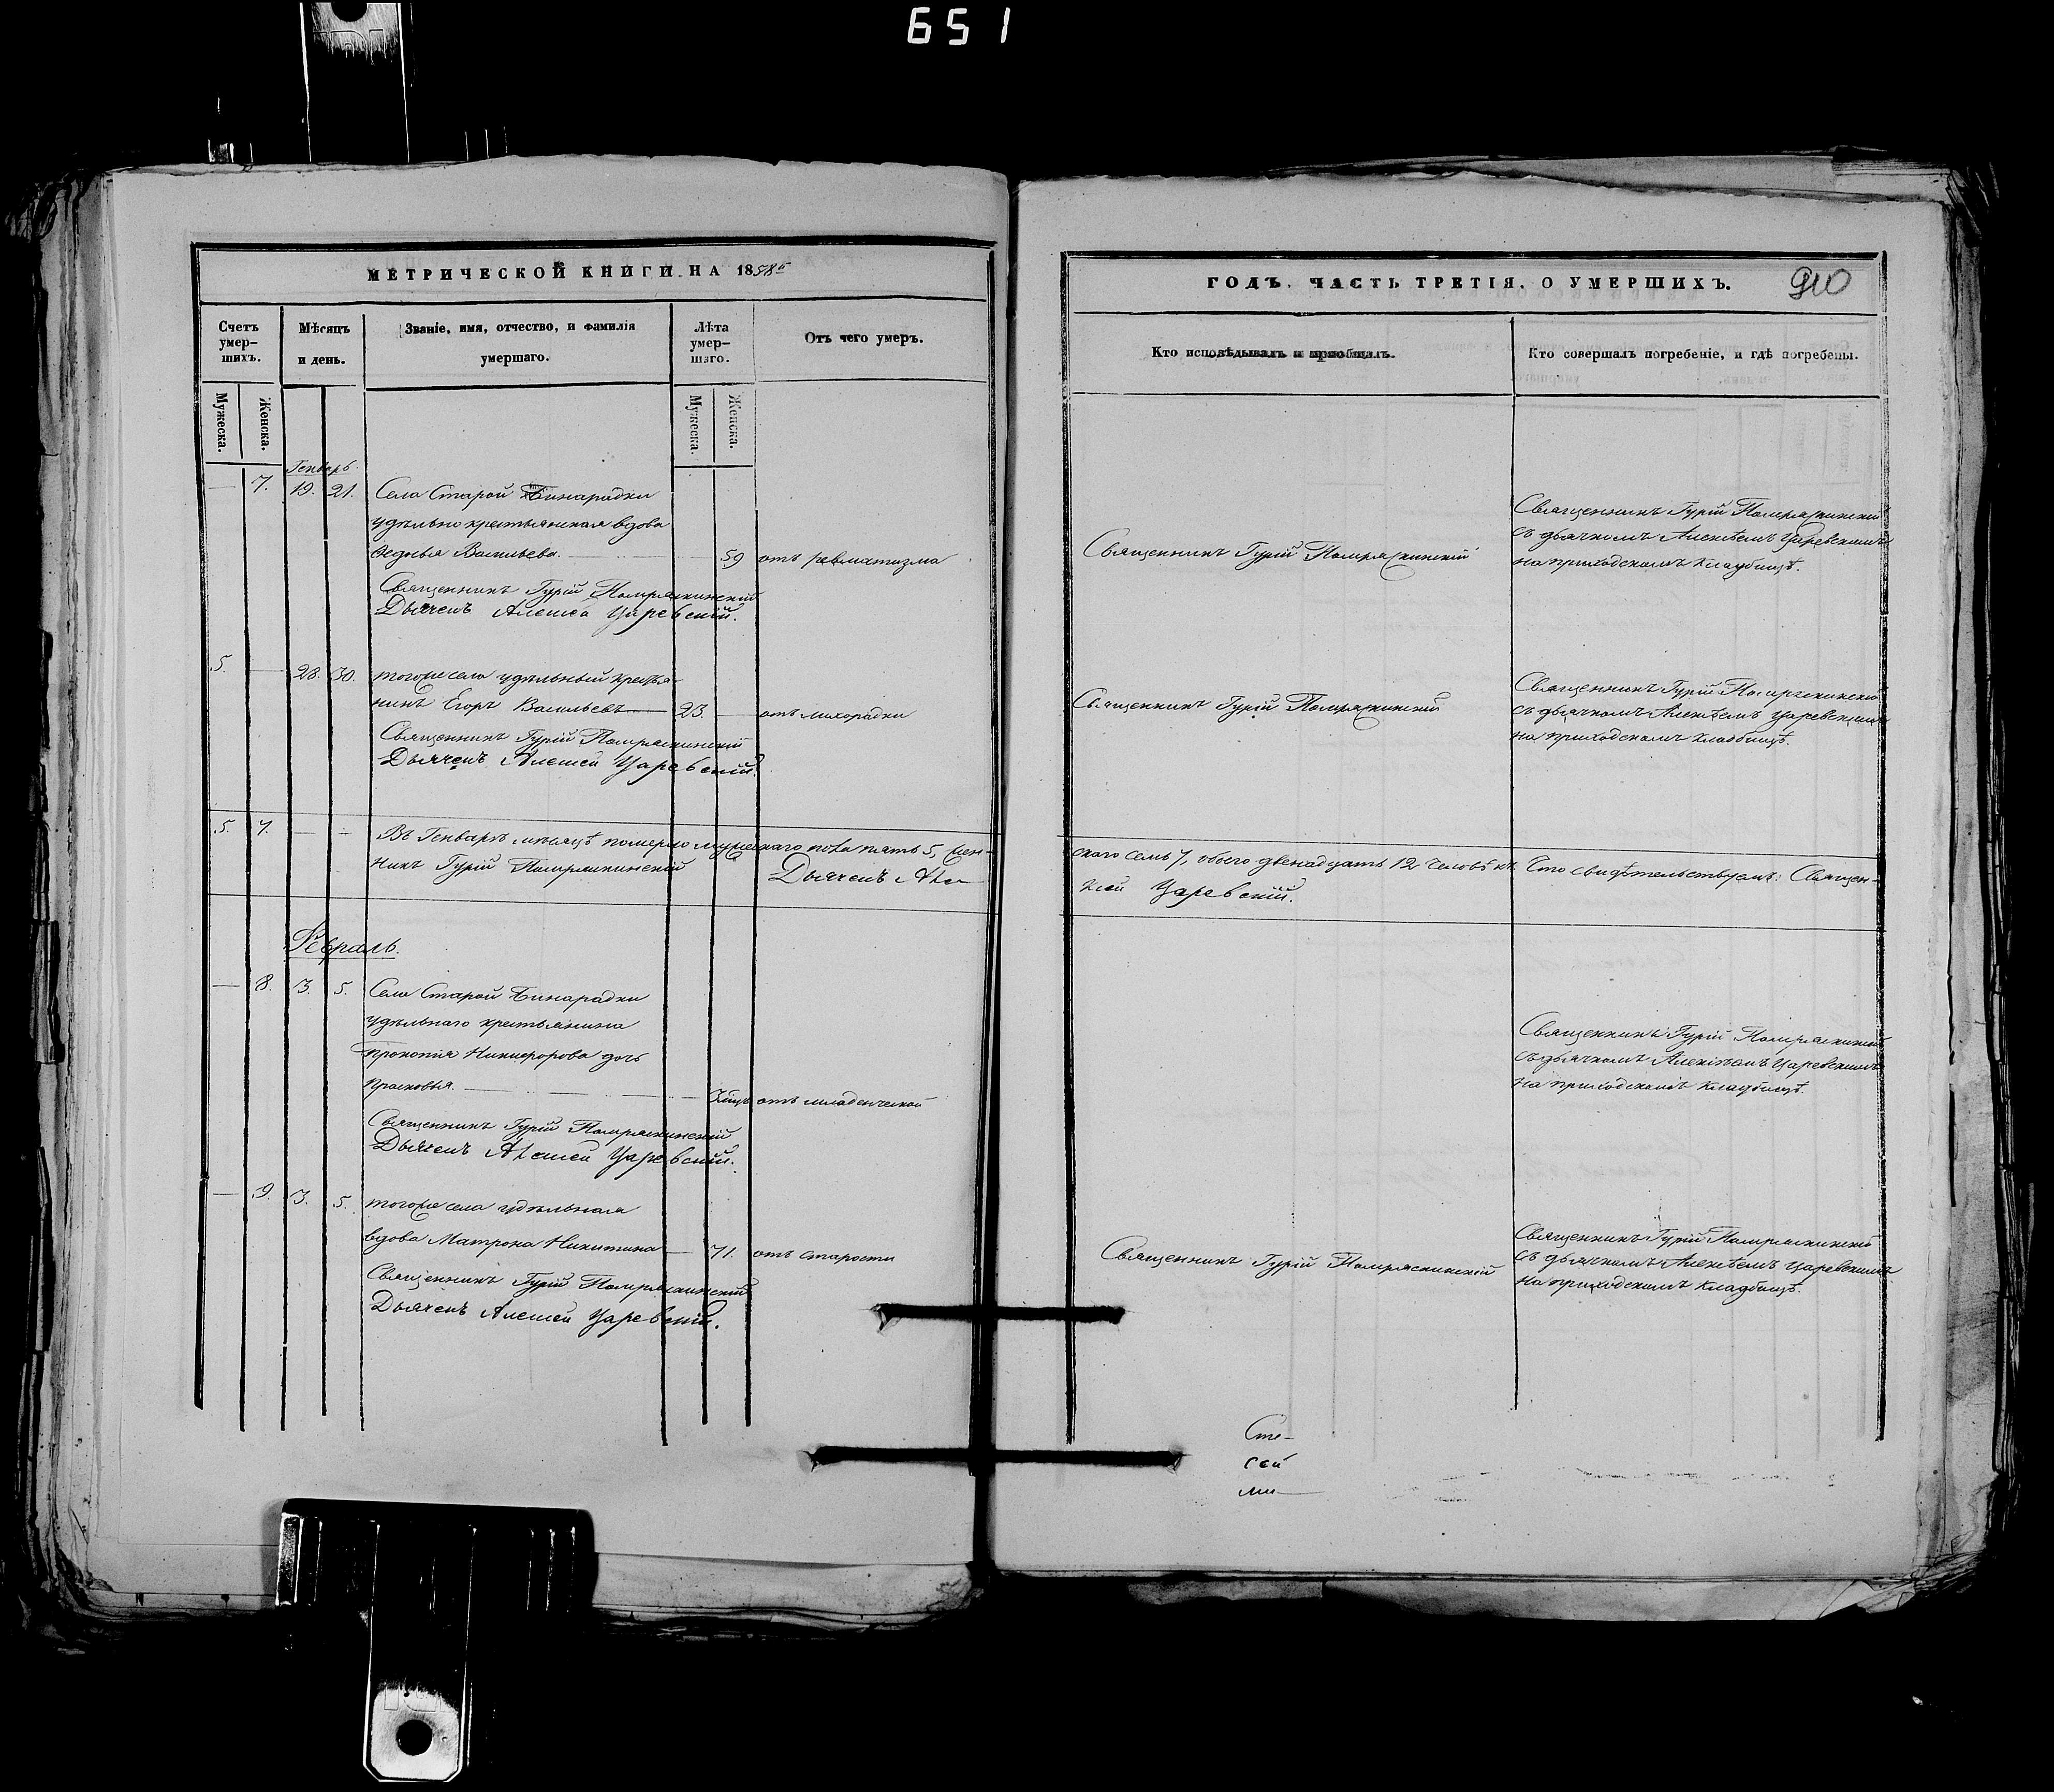 651
МЕТРИЧЕСКОЙ КНИГИ НА 1858й
Счетъ умер-шихъ.
Мѣсяцъ и день.
Званіе, имя, отчество, и фамилія умершаго.
Лѣта умер-шаго.
Отъ чего умеръ.
Мужеска.
Женска.
Мужеска.
Женска.
Генварь
7. 19. 21. Села Старой Бинарадки
удѣльно крестьянская вдова
Ѳедосья Васильева. 59 отъ ревматизма
Священникъ Гурій Помряскинскій
Дьячекъ Алексѣй Царевскій.
5. 28. 30. тогоже села удѣльный крестья-
нинъ Егоръ Васильевъ 23. отъ лихорадки
Священникъ Гурій Помряскинскій
Дьячекъ Алексѣй Царевскій.
5. 7. Въ Генварѣ мѣсяцѣ померло мужескаго пола пять 5, жен-
никъ Гурій Помряскинскій Дьячекъ Але-
Февраль.
8. 3. 5. Села Старой Бинарадки
удѣльнаго крестьянина
Прокопія Никифорова дочь
Прасковья отъ младенческой
Священникъ Гурій Помряскинскій
Дьячекъ Алексѣй Царевскій.
9. 3. 5. тогоже села удѣльная
вдова Матрона Никитина 71. отъ старости
Священникъ Гурій Помряскинскій
Дьячекъ Алексѣй Царевскій.
ГОДЪ. ЧАСТЬ ТРЕТІЯ, О УМЕРШИХЪ.
910
Кто исповѣдывалъ и пріобщалъ.
Кто совершалъ погребеніе, и гдѣ погребены.
Священникъ Гурій Помряскинскій
Священникъ Гурій Помряскинскій
съ дьячкомъ Алексѣемъ Царевскимъ
на приходскомъ кладбищѣ.
Священникъ Гурій Помряскинскій
Священникъ Гурій Помряскинскій
съ дьячкомъ Алексѣемъ Царевскимъ
на приходскомъ кладбищѣ.
скаго семь 7, обоего двенадцать 12 человѣкъ. Что свидѣтельствуемъ: Священ-
ксѣй Царевскій.
Священникъ Гурій Помряскинскій
съ дьячкомъ Алексѣемъ Царевскимъ
на приходскомъ кладбищѣ.
Священникъ Гурій Помряскинскій
Священникъ Гурій Помряскинскій
съ дьячкомъ Алексѣемъ Царевскимъ
на приходскомъ кладбищѣ.
Сте-
сей
ми-